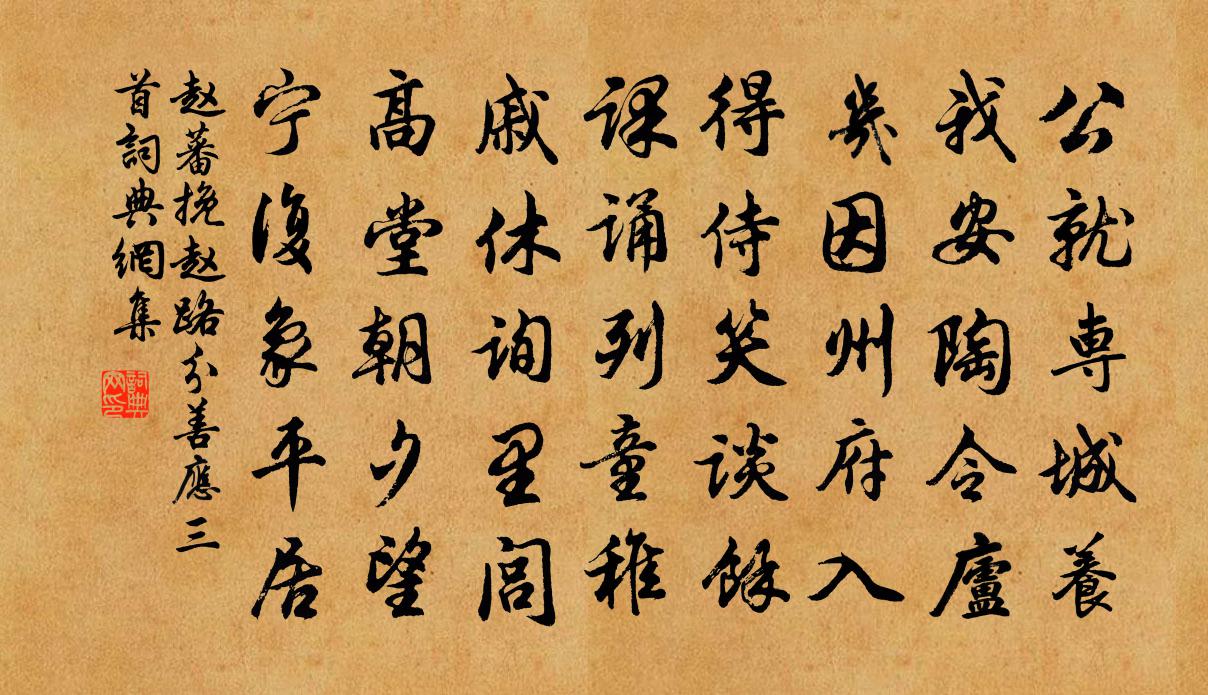 公就専城養
我安陶令廬
幾因州府入
得侍笑談餘
课诵列童稚
戚休询里闾
高堂朝夕望
宁復象平居
赵蕃挽赵路分善應三
首詞典網集
詞典
网印